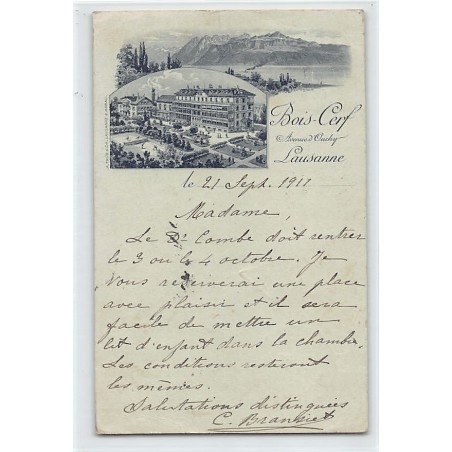 Bois-Cerf
Avenue d'Ouchy
Lausanne
le 21 Sept. 1911
Madame,
Le Dr Combe doit rentrer
le 3 ou le 4 octobre. Je
Vous réserverai une place
avec plaisir et il sera
facile de mettre un
lit d'enfant dans la chambre.
Les conditions resteront
les mêmes.
Salutations distinguées
C.